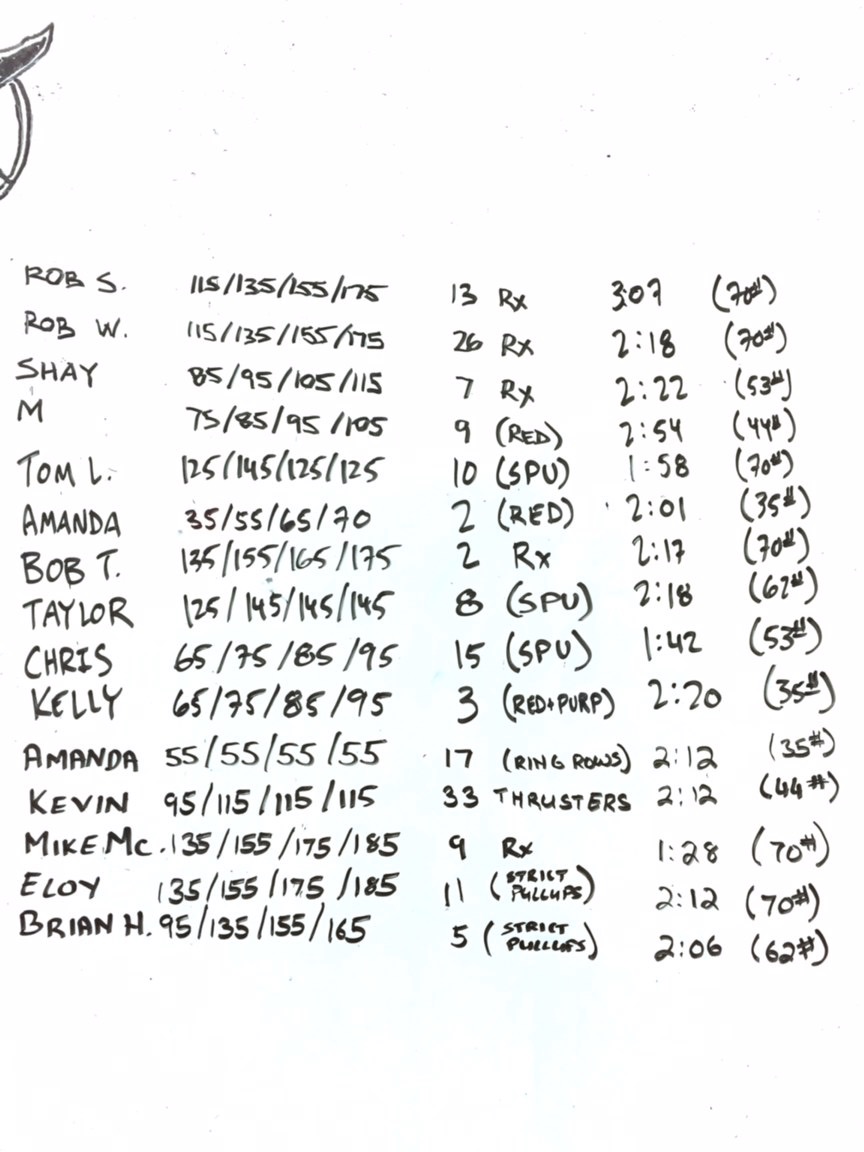 ROB S. 115/135/155/175 13 Rx 3:07 (70#)
ROB W. 115/135/155/175 26 Rx 2:18 (70#)
SHAY 85/95/105/115 7 Rx 2:22 (53#)
M 75/85/95/105 9 (RED) 2:54 (44#)
TOM L. 125/145/125/125 10 (SPU) 1:58 (70#)
AMANDA 35/55/65/70 2 (RED) 2:01 (35#)
BOB T. 135/155/165/175 2 Rx 2:17 (70#)
TAYLOR 125/145/145/145 8 (SPU) 2:18 (62#)
CHRIS 65/75/85/95 15 (SPU) 1:42 (53#)
KELLY 65/75/85/95 3 (RED+PURP) 2:20 (35#)
AMANDA 55/55/55/55 17 (RING ROWS) 2:12 (35#)
KEVIN 95/115/115/115 33 THRUSTERS 2:12 (44#)
MIKE Mc. 135/155/175/185 9 Rx 1:28 (70#)
ELOY 135/155/175/185 11 (STRICT PULLUPS) 2:12 (70#)
BRIAN H. 95/135/155/165 5 (STRICT PULLUPS) 2:06 (62#)